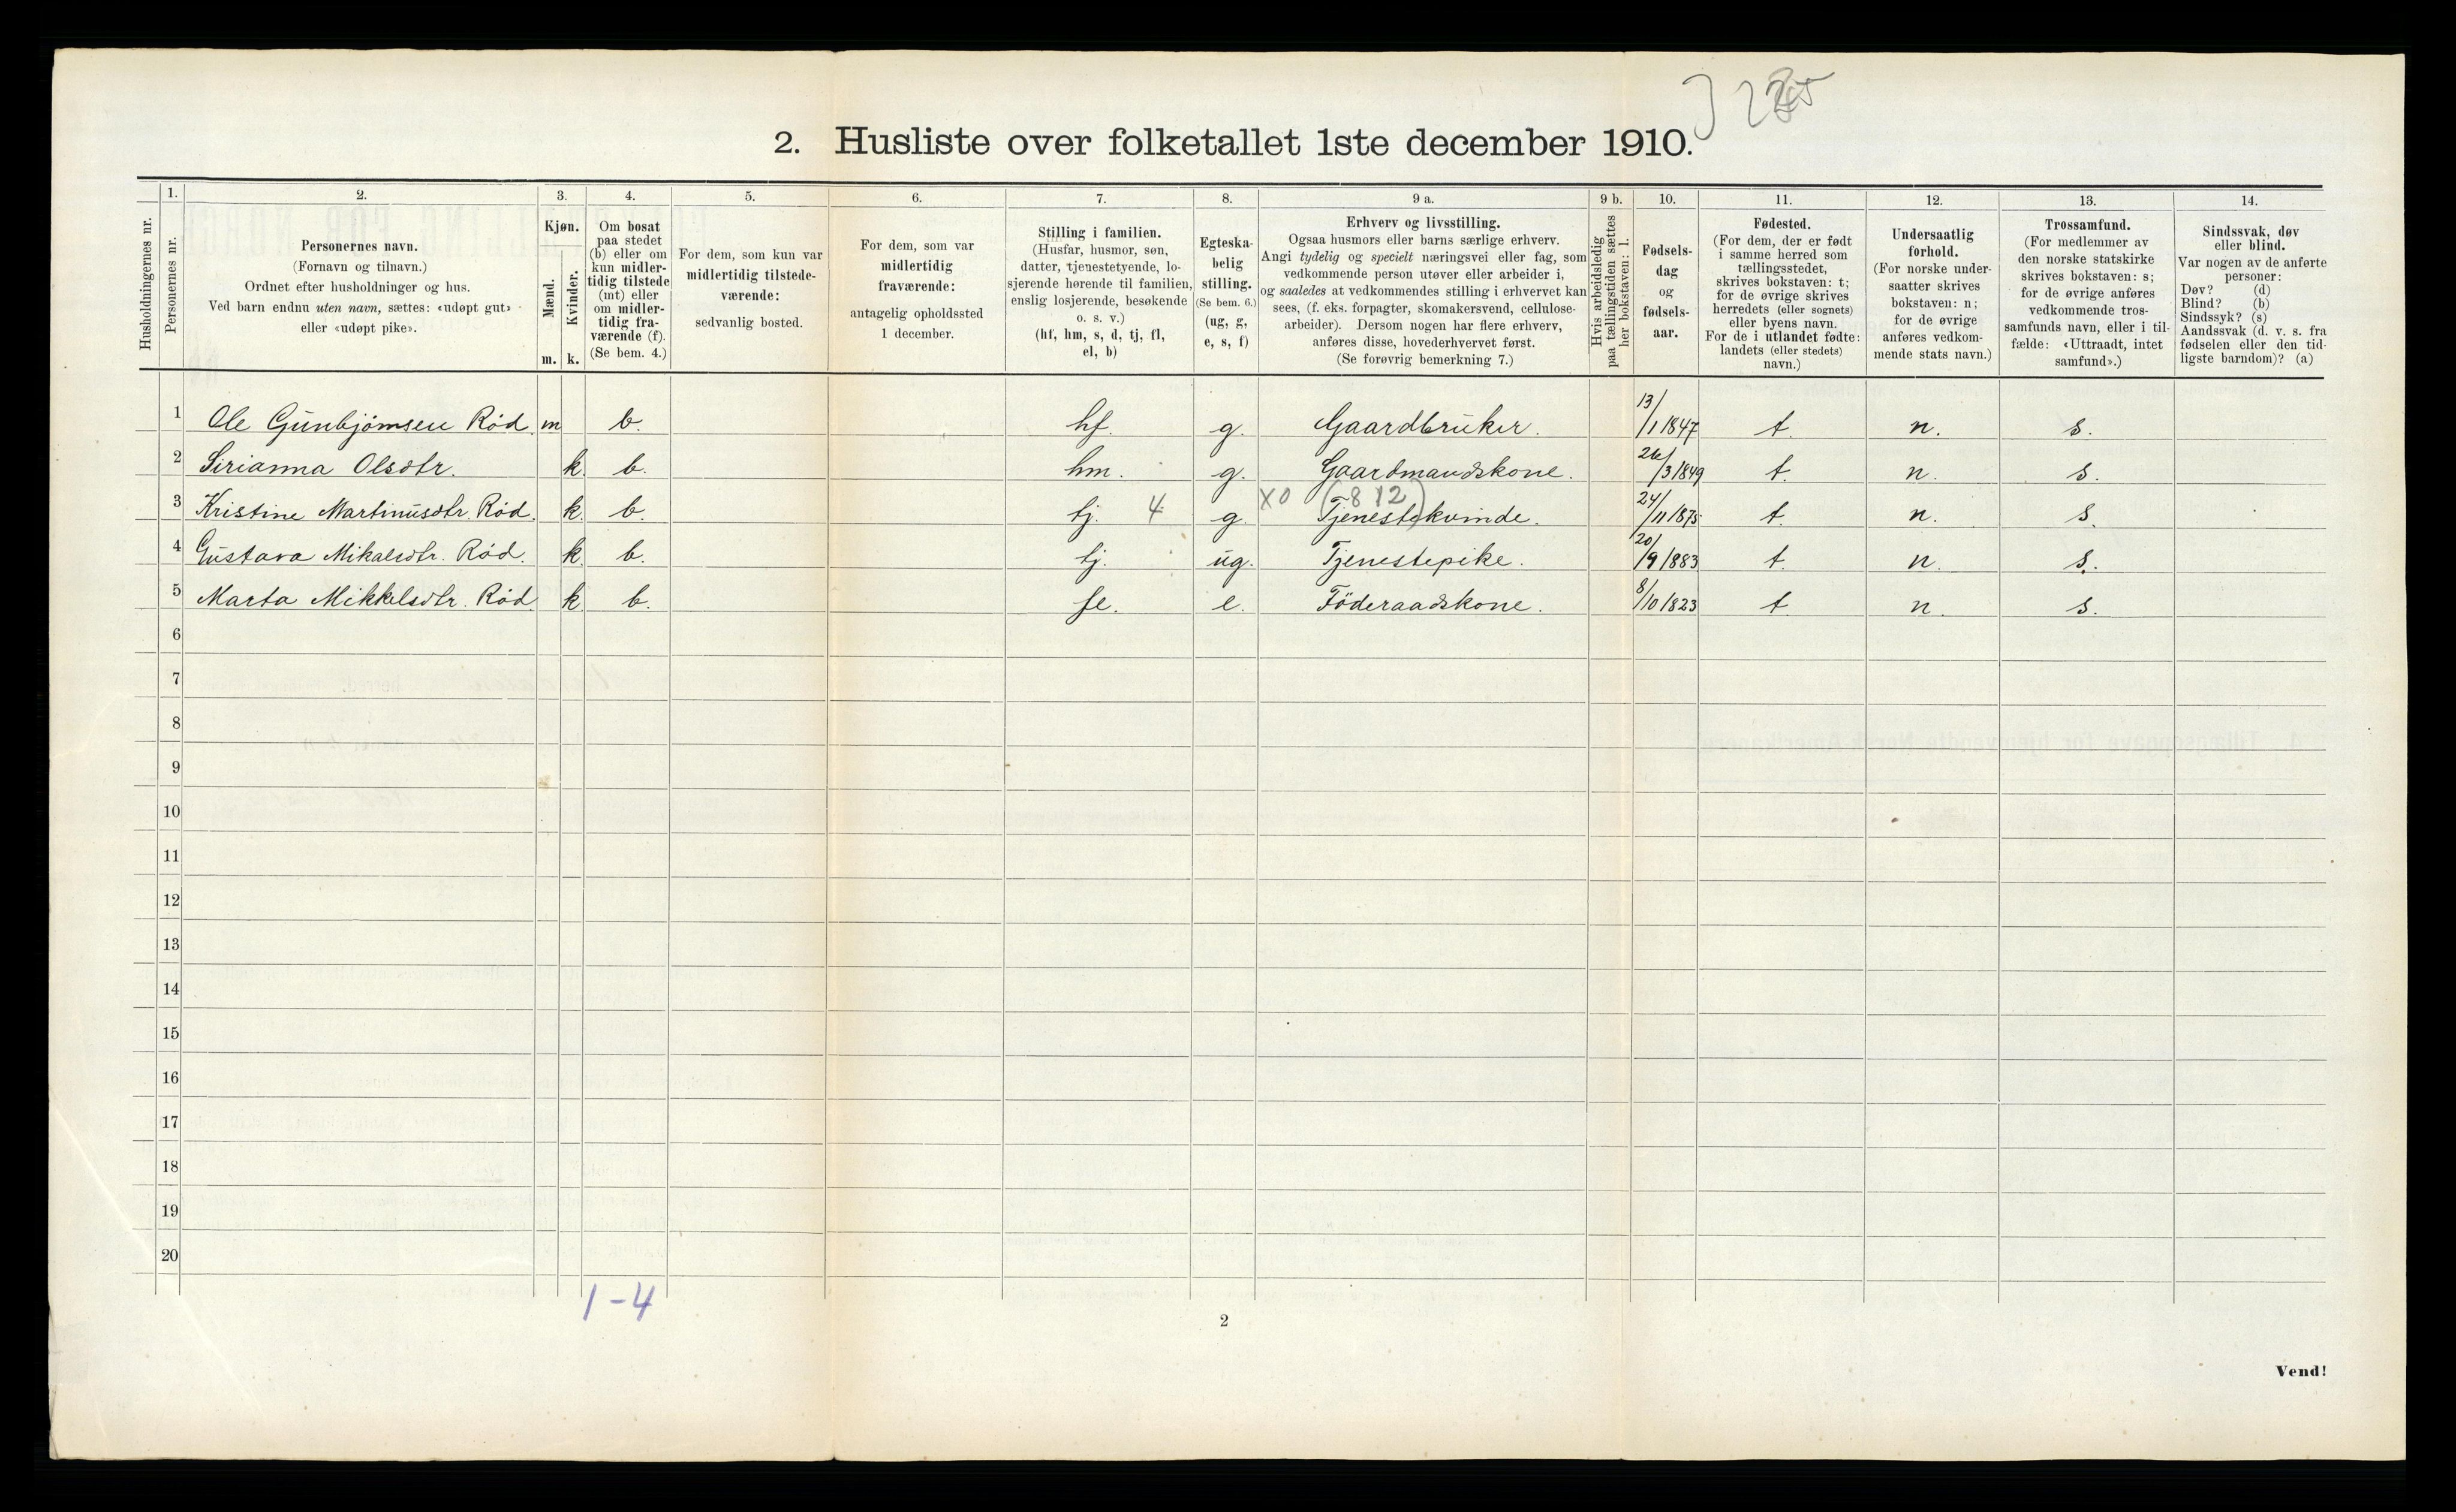 2. Husliste over folketallet 1ste december 1910.
Husholdningernes nr.
1.
Personernes nr.
2.
Personernes navn.
(Fornavn og tilnavn.)
Ordnet efter husholdninger og hus.
Ved barn endnu uten navn, sættes: «udøpt gut»
eller «udøpt pike».
3.
Kjøn.
Mænd.
Kvinder.
m. k.
4.
Om bosat
paa stedet
(b) eller om
kun midler-
tidig tilstede
(mt) eller
om midler-
tidig fra-
værende (f).
(Se bem. 4.)
5.
For dem, som kun var
midlertidig tilstede-
værende:
sedvanlig bosted.
6.
For dem, som var
midlertidig
fraværende:
antagelig opholdssted
1 december.
7.
Stilling i familien.
(Husfar, husmor, søn,
datter, tjenestetyende, lo-
sjerende hørende til familien,
enslig losjerende, besøkende
o. s. v.)
(hf, hm, s, d, tj, fl,
el, b)
8.
Egteska-
belig
stilling.
(Se bem. 6.)
(ug, g,
e, s, f)
9 a.
Erhverv og livsstilling.
Ogsaa husmors eller barns særlige erhverv.
Angi tydelig og specielt næringsvei eller fag, som
vedkommende person utøver eller arbeider i,
og saaledes at vedkommendes stilling i erhvervet kan
sees, (f. eks. forpagter, skomakersvend, cellulose-
arbeider). Dersom nogen har flere erhverv,
anføres disse, hovederhvervet først.
(Se forøvrig bemerkning 7.)
9 b.
Hvis arbeidsledig
paa tællingstiden sættes
her bokstaven: l.
10.
Fødsels-
dag
og
fødsels-
aar.
11.
Fødested.
(For dem, der er født
i samme herred som
tællingsstedet,
skrives bokstaven: t;
for de øvrige skrives
herredets (eller sognets)
eller byens navn.
For de i utlandet fødte:
landets (eller stedets)
navn.)
12.
Undersaatlig
forhold.
(For norske under-
saatter skrives
bokstaven: n;
for de øvrige
anføres vedkom-
mende stats navn.)
13.
Trossamfund.
(For medlemmer av
den norske statskirke
skrives bokstaven: s;
for de øvrige anføres
vedkommende tros-
samfunds navn, eller i til-
fælde: «Uttraadt, intet
samfund».)
14.
Sindssvak, døv
eller blind.
Var nogen av de anførte
personer:
Døv? (d)
Blind? (b)
Sindssyk? (s)
Aandssvak (d. v. s. fra
fødselen eller den tid-
ligste barndom)? (a)
1 Ole Gunbjørnsen Rød. m b. hf. g. Gaardbruker. 13/1 1847 t. n. s.
2 Sirianna Olsdtr. k. b. hm. g. Gaardmandskone. 26/3 1849 t. n. s.
3 Kristine Martinusdtr. Rød. k. b. tj. 4 g. X0 (812) Tjenestekvinde. 24/11 1875 t. n. s.
4 Gustava Mikalsdtr. Rød. k. b. tj. ug. Tjenestepike. 20/9 1883 t. n. s.
5 Marta Mikkelsdtr. Rød. k. b. fl. e. Föderaadskone. 8/10 1823 t n. s.
6
7
8
9
10
11
12
13
14
15
16
17
18
19
20
1-4
2
Vend!